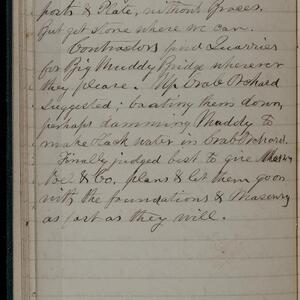 posts & Plate, without Braces.
But get stone where we can.
Contractors find Quarries
for Big Muddy Bridge wherever
they please. Up Crab Orchard
suggested; boating them down,
perhaps damming Muddy to
make slack water in Crab Orchard.
Finally judged best to give
& Co. plans & let them go on
with the foundations & Masonry
as fast as they will.